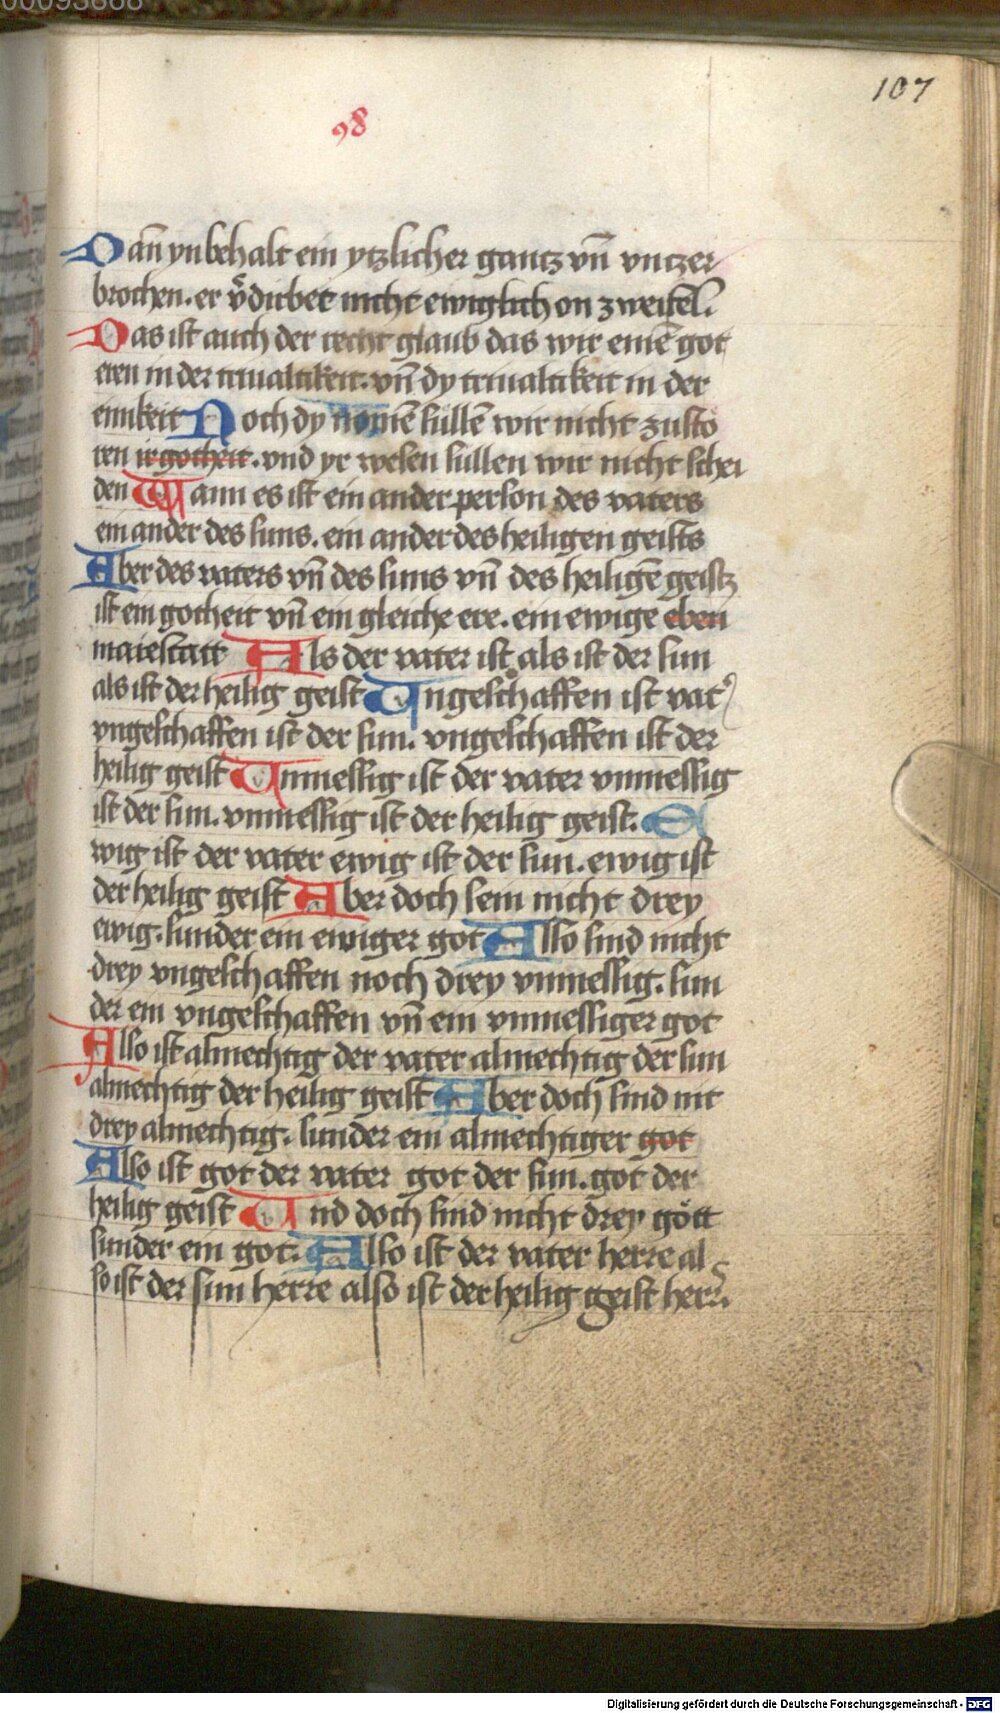 00093868
107
98
Dañ yn behalt ein ytzlicher gantz vñ vnczer
brochen. er v̄dirbet nicht ewiglich on zweifel.
Das ist auch der recht glaub das wir einē got
eren in der triualtikeit. vñ dy triualtikeit in der
einikeit Noch dy nomē sullē wir nicht zusto
ren ir gotheit. vnd yr wesen sullen wir nicht schei
den Wann es ist ein ander person des vaters
ein ander des suns. ein ander des heiligen geists
Aber des vaters vñ des suns vñ des heiligē geistz
ist ein gotheit vñ ein gleiche ere. ein ewige eben
maiestatt Als der vater ist als ist der sun
als ist der heilig geist Ungeschaffen ist vat᾽
vngeschaffen ist der sun. vngeschaffen ist der
heilig geist Unmessig ist der vater vnmessig
ist der sun. vnmessig ist der heilig geist. E
wig ist der vater ewig ist der sun. ewig ist
der heilig geist Aber doch sein nicht drey
ewig. sunder ein ewiger got Also sind nicht
drey vngeschaffen noch drey vnmessig. sun
der ein vngeschaffen vñ ein vnmessiger got
Also ist almechtig der vater almechtig der sun
almechtig der heilig geist Aber doch sind nit
drey almechtig. sunder ein almechtiger got
Also ist got der vater got der sun. got der
heilig geist Und doch sind nicht drey gött
sunder ein got. Also ist der vater herre al
so ist der sun herre also ist der heilig geist herr.
Digitalisierung gefördert durch die Deutsche Forschungsgemeinschaft - DFG